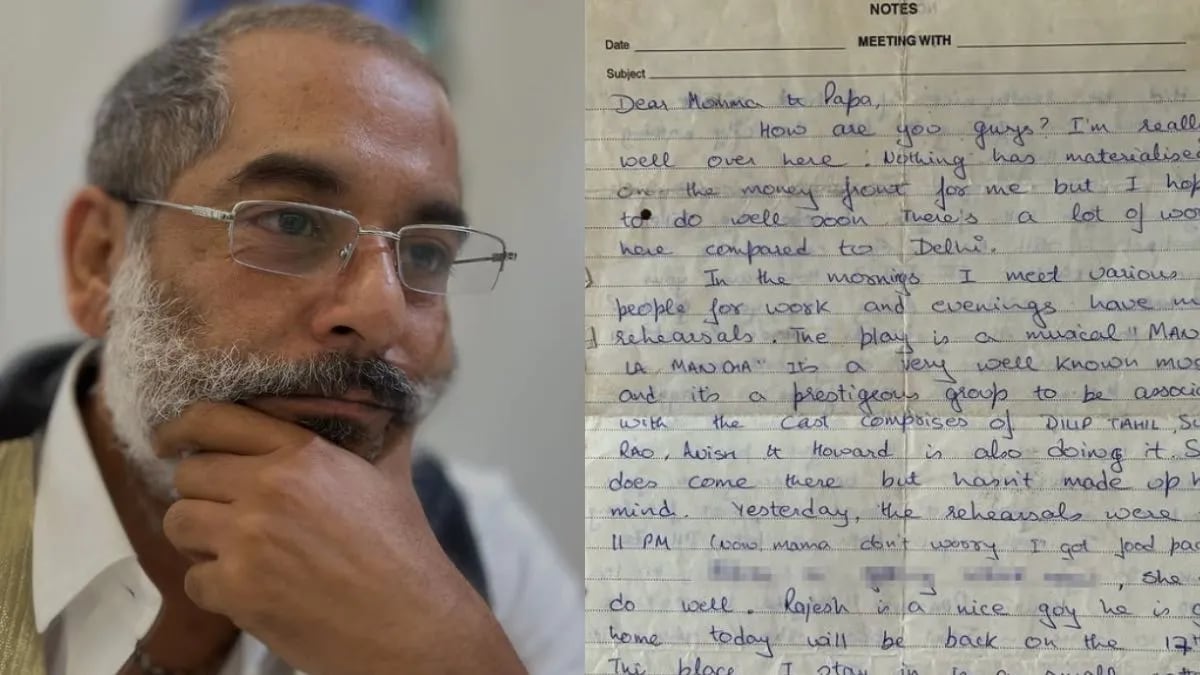 NOTES
Date MEETING WITH
Subject
Dear Momma & Papa,
How are you guys? I'm reall
well over here. Nothing has materialise
on the money front for me but I hop
to do well soon There's a lot of wor
here compared to Delhi.
In the mornings I meet various
people for work and evenings have m
rehearsals. The play is a musical "MAN
LA MANCHA" Its a very well known mus
and its a prestigeous group to be associ
with the cast comprises of DILIP TAHIL, SU
RAO, Avish & Howard is also doing it. S
does come there but hasn't made up h
mind. Yesterday, the rehearsals were
11 PM (now mama don't worry I got food pac
, she
do well. Rajesh is a nice guy he is g
home today will be back on the 17th
The place I stay in is a small